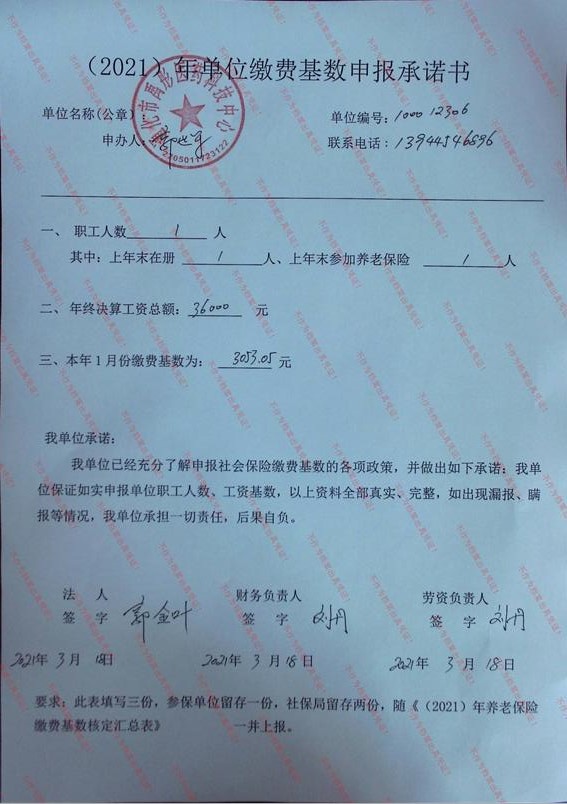 （2021）年单位缴费基数申报承诺书
单位名称(公章)：
单位编号：10001 2306
申办人：
联系电话：13944546896
2205011723122
一、 职工人数 1 人
其中：上年末在册 1 人、上年末参加养老保险 1 人
二、 年终决算工资总额：36000 元
三、本年1月份缴费基数为： 3053.05 元
我单位承诺：
我单位已经充分了解申报社会保险缴费基数的各项政策，并做出如下承诺：我单
位保证如实申报单位职工人数、工资基数，以上资料全部真实、完整，如出现漏报、瞒
报等情况，我单位承担一切责任，后果自负。
法 人 财务负责人 劳资负责人
签 字 郭金叶 签 字 刘丹 签 字 刘丹
2021年 3 月 18日 2021年 3 月 18 日 2021年 3 月 18 日
要求：此表填写三份，参保单位留存一份，社保局留存两份，随《（2021）年养老保险
缴费基数核定汇总表》 一并上报。